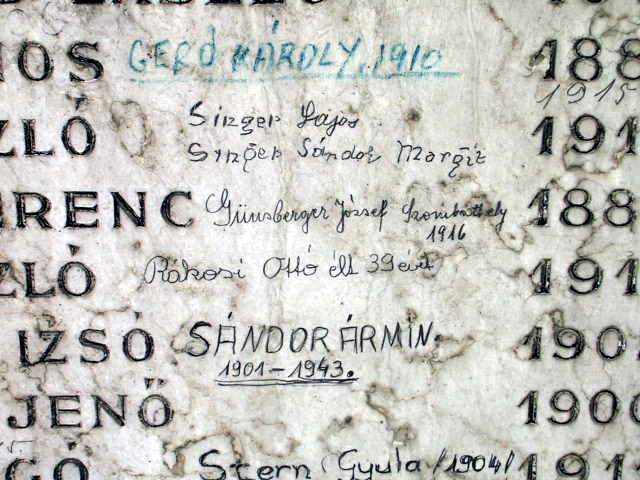 NOS GERŐ KÁROLY, 1910 188
1915
ZLÓ Singer Lajos 191
Singer Sándor Margit
ERENC Günsberger József Szombathely 188
1916
ZLÓ Rákosi Ottó élt 39 évit 191
IZSÓ SÁNDOR ÁRMIN. 190
1901-1943.
JENŐ 190
GÓ Stern Gyula /1904/ 191